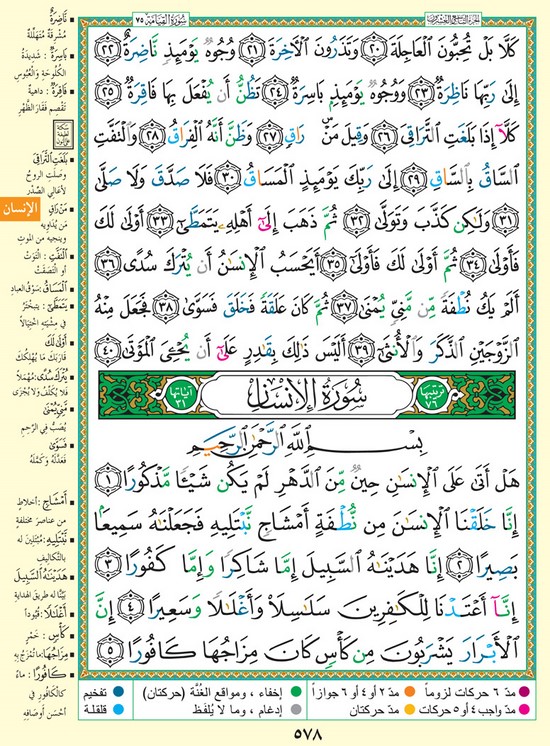 سُورَةُ القِيَامَة ٧٥
الجزء التاسع والعشرون
كَلَّا بَلْ تُحِبُّونَ ٱلْعَاجِلَةَ ٢٠ وَتَذَرُونَ ٱلْأَخِرَةَ ٢١ وُجُوهٌ يَوْمَئِذٍ نَّاضِرَةٌ ٢٢
إِلَىٰ رَبِّهَا نَاظِرَةٌ ٢٣ وَوُجُوهٌ يَوْمَئِذٍۭ بَاسِرَةٌ ٢٤ تَظُنُّ أَن يُفْعَلَ بِهَا فَاقِرَةٌ ٢٥
كَلَّآ إِذَا بَلَغَتِ ٱلتَّرَاقِىَ ٢٦ وَقِيلَ مَنْ ۜ رَاقٍ ٢٧ وَظَنَّ أَنَّهُ ٱلْفِرَاقُ ٢٨ وَٱلْتَفَّتِ
ٱلسَّاقُ بِٱلسَّاقِ ٢٩ إِلَىٰ رَبِّكَ يَوْمَئِذٍ ٱلْمَسَاقُ ٣٠ فَلَا صَدَّقَ وَلَا صَلَّىٰ
٣١ وَلَٰكِن كَذَّبَ وَتَوَلَّىٰ ٣٢ ثُمَّ ذَهَبَ إِلَىٰٓ أَهْلِهِۦ يَتَمَطَّىٰٓ ٣٣ أَوْلَىٰ لَكَ
فَأَوْلَىٰ ٣٤ ثُمَّ أَوْلَىٰ لَكَ فَأَوْلَىٰٓ ٣٥ أَيَحْسَبُ ٱلْإِنسَٰنُ أَن يُتْرَكَ سُدًى ٣٦
أَلَمْ يَكُ نُطْفَةً مِّن مَّنِىٍّ يُمْنَىٰ ٣٧ ثُمَّ كَانَ عَلَقَةً فَخَلَقَ فَسَوَّىٰ ٣٨ فَجَعَلَ مِنْهُ
ٱلزَّوْجَيْنِ ٱلذَّكَرَ وَٱلْأُنثَىٰٓ ٣٩ أَلَيْسَ ذَٰلِكَ بِقَٰدِرٍ عَلَىٰٓ أَن يُحْـِىَ ٱلْمَوْتَىٰ ٤٠
ترتيبها ٧٦ سُورَةُ الإِنسَان آياتها ٣١
بِسْمِ ٱللَّهِ ٱلرَّحْمَٰنِ ٱلرَّحِيمِ
هَلْ أَتَىٰ عَلَى ٱلْإِنسَٰنِ حِينٌ مِّنَ ٱلدَّهْرِ لَمْ يَكُن شَيْـًٔا مَّذْكُورًا ١
إِنَّا خَلَقْنَا ٱلْإِنسَٰنَ مِن نُّطْفَةٍ أَمْشَاجٍ نَّبْتَلِيهِ فَجَعَلْنَٰهُ سَمِيعًۢا
بَصِيرًا ٢ إِنَّا هَدَيْنَٰهُ ٱلسَّبِيلَ إِمَّا شَاكِرًا وَإِمَّا كَفُورًا ٣
إِنَّآ أَعْتَدْنَا لِلْكَٰفِرِينَ سَلَٰسِلَا۟ وَأَغْلَٰلًا وَسَعِيرًا ٤ إِنَّ
ٱلْأَبْرَارَ يَشْرَبُونَ مِن كَأْسٍ كَانَ مِزَاجُهَا كَافُورًا ٥
نَّاضِرَةٌ
مُشْرِقَةٌ مُتَهَلِّلَةٌ
بَاسِرَةٌ : شديدَةُ
الكُلُوحَةِ وَالْعُبُوسِ
فَاقِرَةٌ : داهيةٌ
تَقْصِمُ فَقَارَ الظَّهْرِ
بَلَغَتِ التَّرَاقِيَ
وَصَلَتِ الروحُ
لأعَالِي الصَّدْرِ
مَنْ رَاقٍ
مَن يُدَاوِيهِ
ويُنجيهِ من الموتِ
الإنسان
الْتَفَّتِ : الْتَوَتْ
أو الْتَصَقَتْ
الْمَسَاقُ : سَوْقُ العبادِ
يَتَمَطَّى : يتبخْتَرُ
في مِشْيَتِهِ اخْتِيَالًا
أَوْلَى لَكَ
قَارَبَكَ مَا يُهْلِكُكَ
يُتْرَكَ سُدًى : مُهْمَلًا
فَلَا يُكَلَّفُ وَلَا يُجْزَى
مَنِيٍّ يُمْنَى
يُصَبُّ فِي الرَّحِمِ
فَسَوَّى
فَعَدَّلَهُ وَكَمَّلَهُ
أَمْشَاجٍ : أخلاطٍ
من عناصرَ مختلفةٍ
نَبْتَلِيهِ : مُبْتَلِينَ له
بالتَّكاليفِ
هَدَيْنَاهُ السَّبِيلَ
بيَّنَّا له طريقَ الهدايةِ
أَغْلَالًا : قُيُودًا
كَأْسٍ : خَمْرٍ
مِزَاجُهَا : ما تُمْزَجُ بهِ
كَافُورًا : ماءً
كالكافُورِ في
أحْسَنِ أوصَافِهِ
مدّ ٦ حركات لزوماً
مدّ ٢ أو ٤ أو ٦ جوازاً
إخفاء ، ومواقع الغُنَّة (حركتان)
تفخيم
مدّ واجب ٤ أو ٥ حركات
مدّ حركتان
إدغام ، وما لا يُلفَظ
قلقلة
٥٧٨